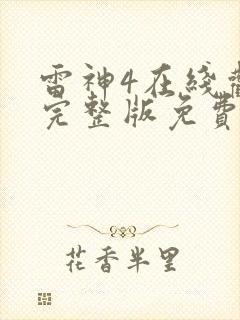 雷神4在线
完整版免費
花香半里